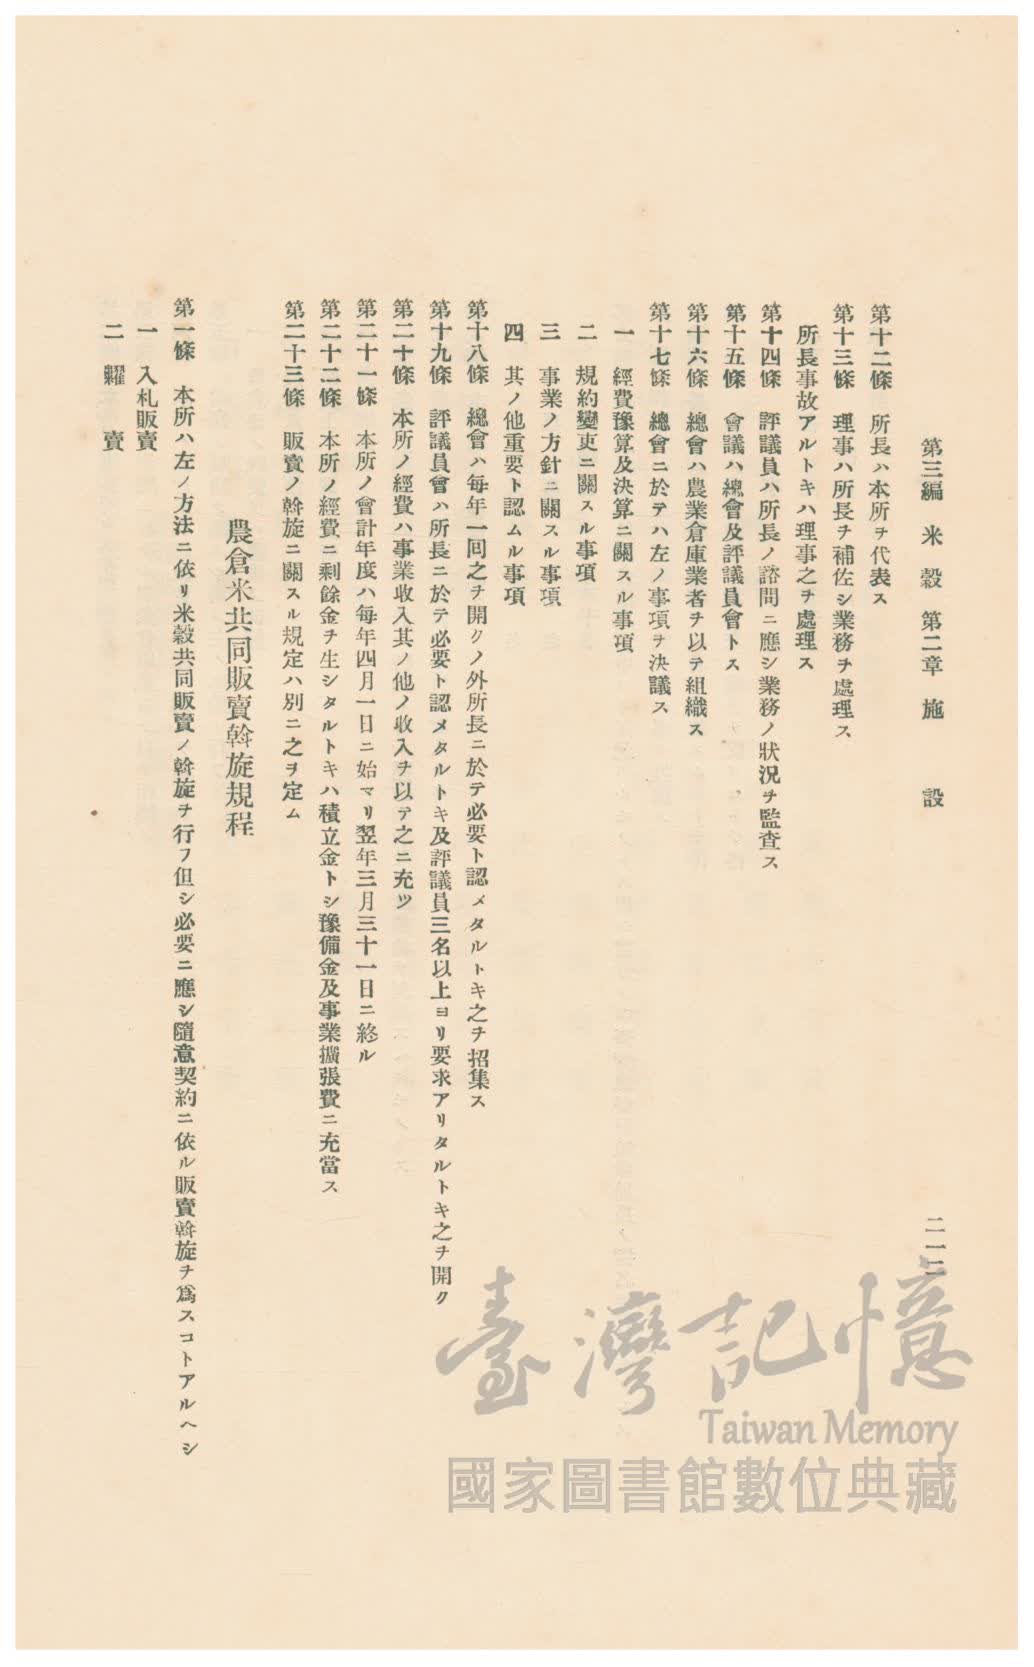 第三編　米穀　第二章　施設
二一二
第十二條　所長ハ本所ヲ代表ス
第十三條　理事ハ所長ヲ補佐シ業務ヲ處理ス
所長事故アルトキハ理事之ヲ處理ス
第十四條　評議員ハ所長ノ諮問ニ應シ業務ノ狀況ヲ監査ス
第十五條　會議ハ總會及評議員會トス
第十六條　總會ハ農業倉庫業者ヲ以テ組織ス
第十七條　總會ニ於テハ左ノ事項ヲ決議ス
一　經費豫算及決算ニ關スル事項
二　規約變更ニ關スル事項
三　事業ノ方針ニ關スル事項
四　其ノ他重要ト認ムル事項
第十八條　總會ハ每年一回之ヲ開クノ外所長ニ於テ必要ト認メタルトキ之ヲ招集ス
第十九條　評議員會ハ所長ニ於テ必要ト認メタルトキ及評議員三名以上ヨリ要求アリタルトキ之ヲ開ク
第二十條　本所ノ經費ハ事業收入其ノ他ノ收入ヲ以テ之ニ充ツ
第二十一條　本所ノ會計年度ハ每年四月一日ニ始マリ翌年三月三十一日ニ終ル
第二十二條　本所ノ經費ニ剩餘金ヲ生シタルトキハ積立金トシ豫備金及事業擴張費ニ充當ス
第二十三條　販賣ノ斡旋ニ關スル規定ハ別ニ之ヲ定ム
農倉米共同販賣斡旋規程
第一條　本所ハ左ノ方法ニ依リ米穀共同販賣ノ斡旋ヲ行フ但シ必要ニ應シ隨意契約ニ依ル販賣斡旋ヲ爲スコトアルヘシ
一　入札販賣
二　糶賣
臺灣記憶
Taiwan Memory
國家圖書館數位典藏